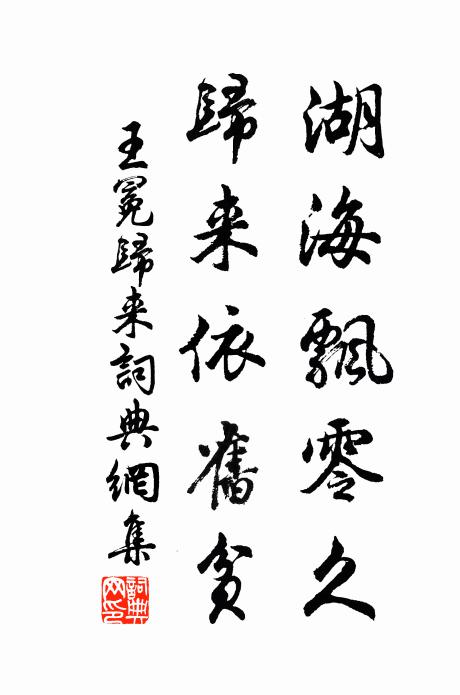 湖海飄零久
歸来依舊貧
王冕歸来詞典網集
詞典网印